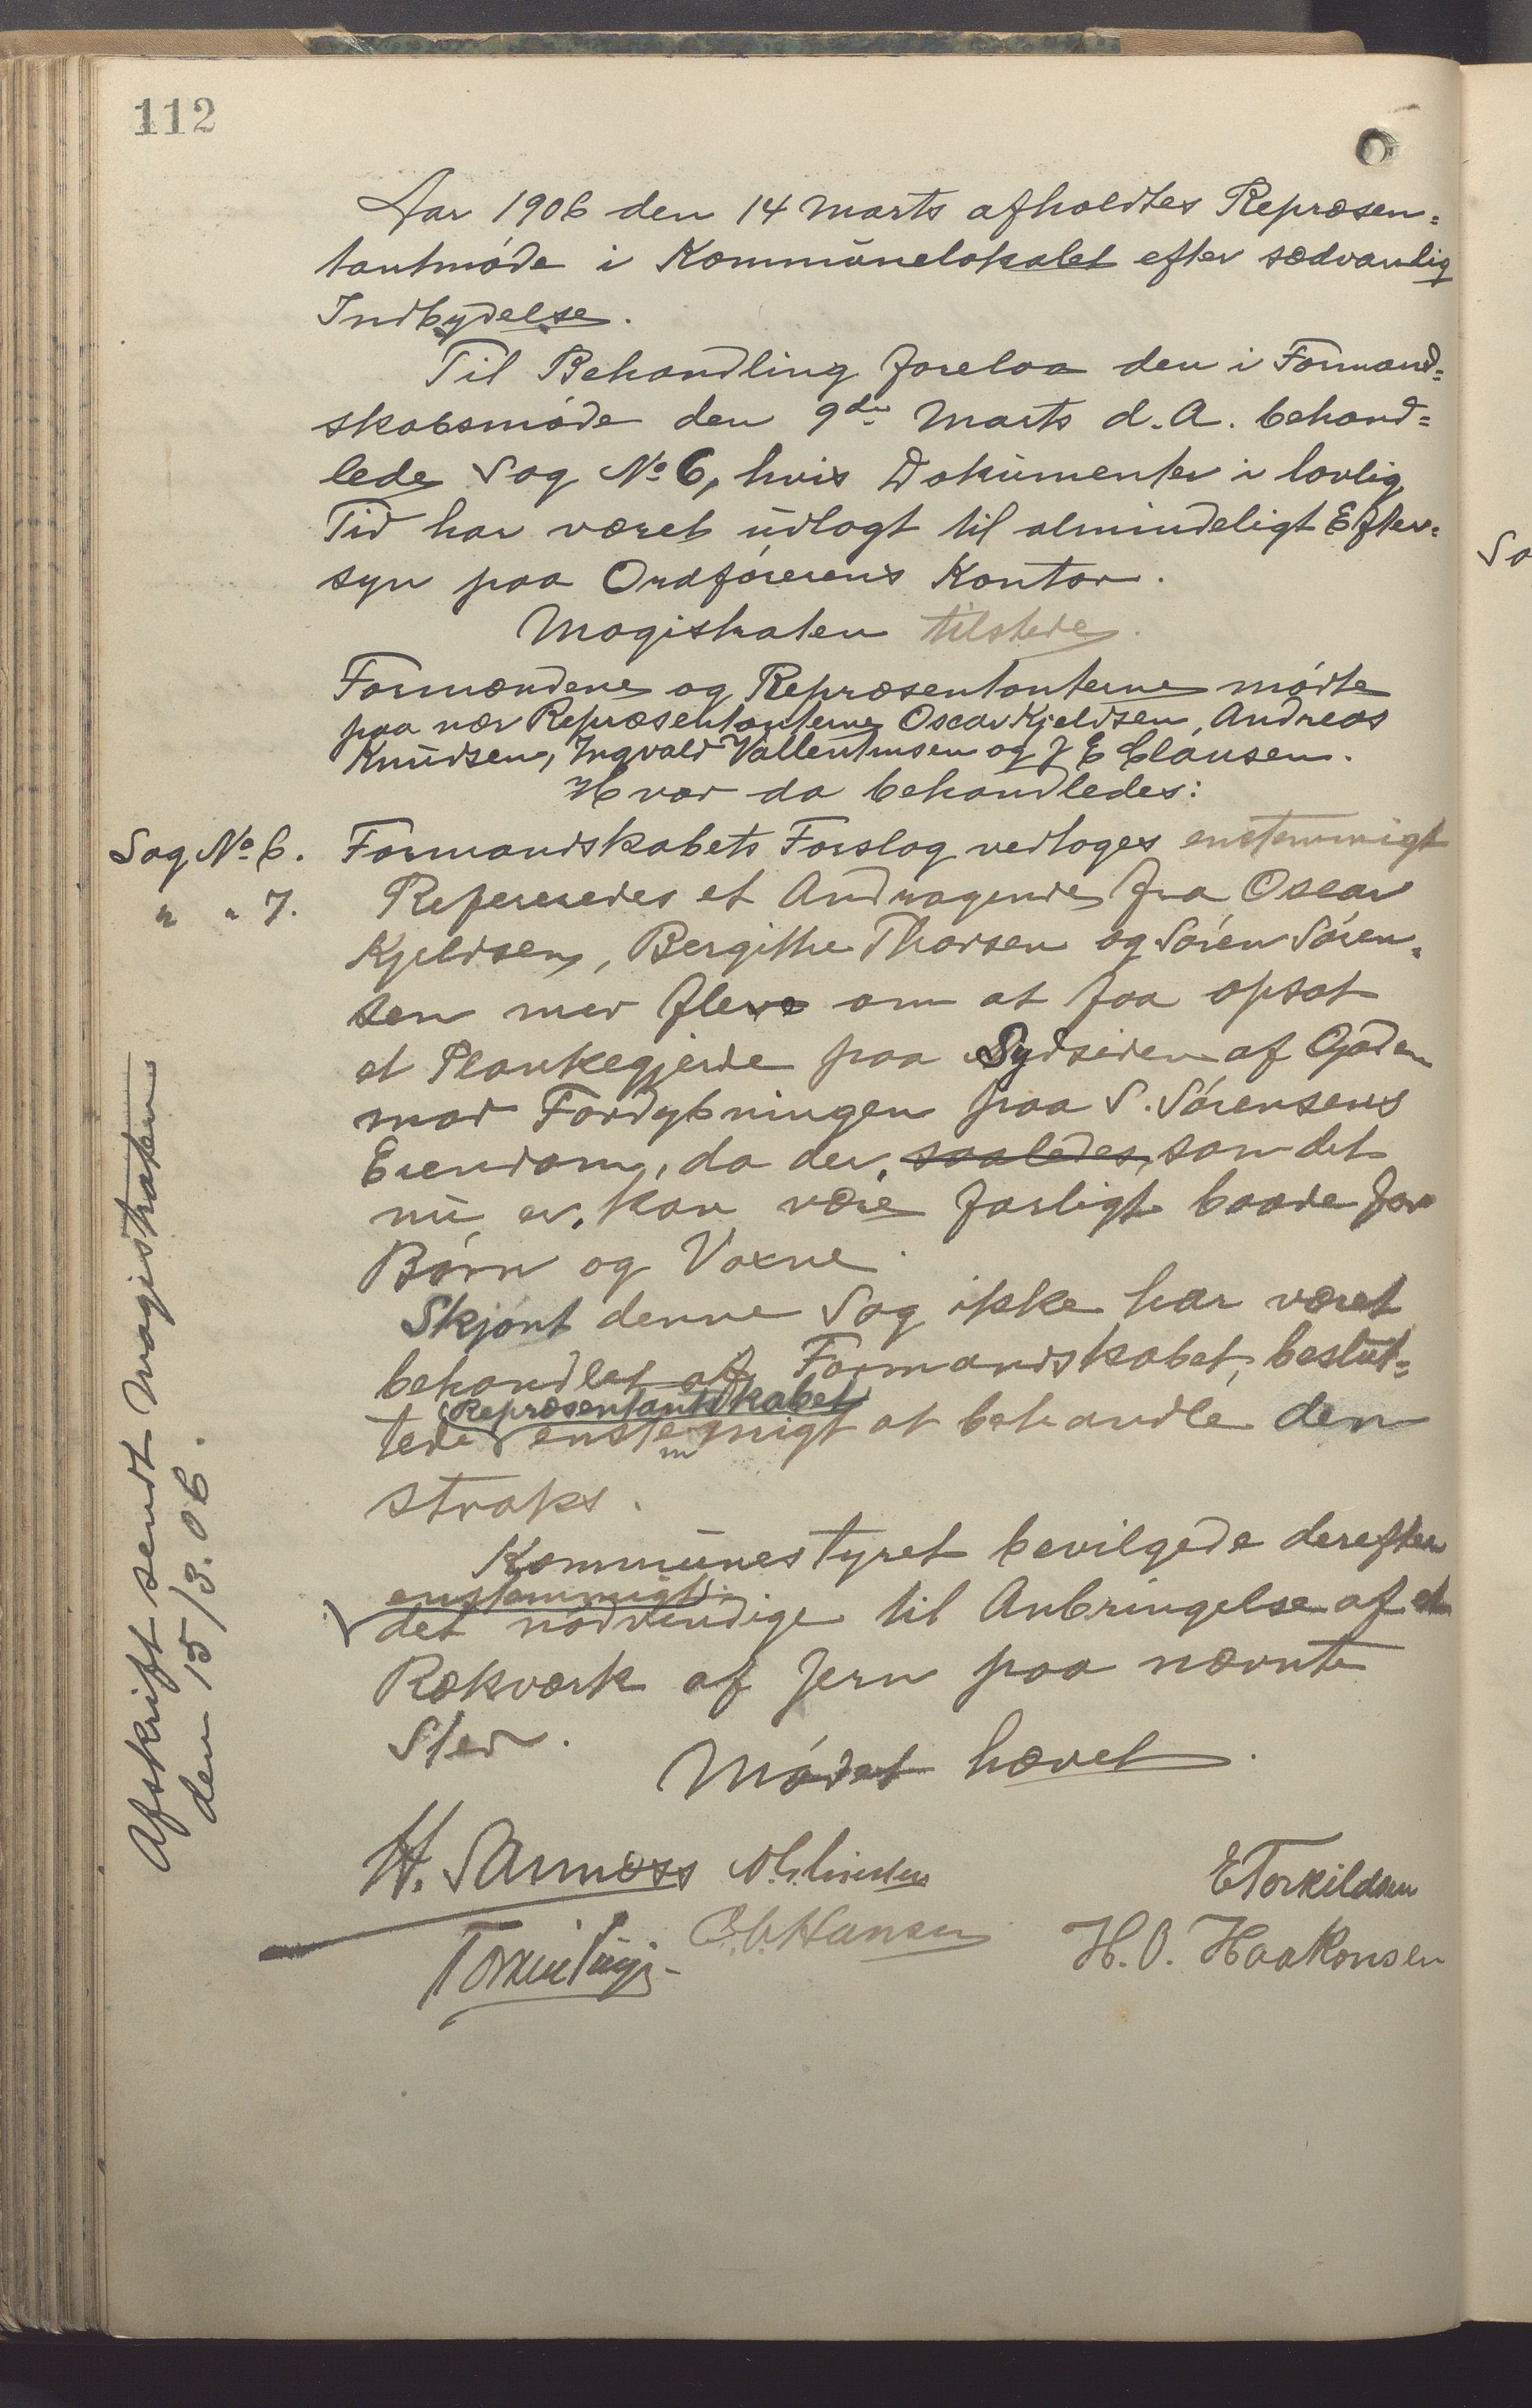 112
Aar 1906 den 14 Marts afholdtes Repræsen=
tantmøde i Kommunelokalet efter sædvanlig
Indbydelse.
Til Behandling forelaa den i Formand=
skabsmøde den 9de Marts d.A. behand=
lede Sag No 6, hvis Dokumenter i lovlig
Tid har været udlagt til almindeligt Efter=
syn paa Ordførerens Kontor.
Magistraten tilstede.
Formændene og Repræsentanterne mødte
paa nær Repræsentanterne Oscar Kjeldsen, Andreas
Knudsen, Ingvald Vallentinsen og J E Clausen.
Hvor da behandledes:
Sag No 6. Formandskabets Forslag vedtoges enstemmigt
" " 7. Refereredes et Andragende fra Oscar
Kjeldsen, Bergithe Thorsen og Søren Søren=
sen med flere om at faa opsat
et Plankegjerde paa Sydsiden af Gaden
mod Fordybningen paa S. Sørensens
Eiendom, da der, saaledes, som det
nu er, kan være farligt baade for
Børn og Voxne.
Skjønt denne Sag ikke har været
behandlet af Formandskabet, beslut=
Repræsentantskabet
tede enstemmigt at behandle den
straks.
Kommunestyret bevilgede derefter
enstemmigt
det nødvendige til Anbringelse af et
Rækværk af Jern paa nævnte
Sted.
Mødet hævet.
E Torkildsen
O. C. Hansen
H. O. Haakonsen
Afskrift sendt Magistraten
den 15/3. 06.
Sa